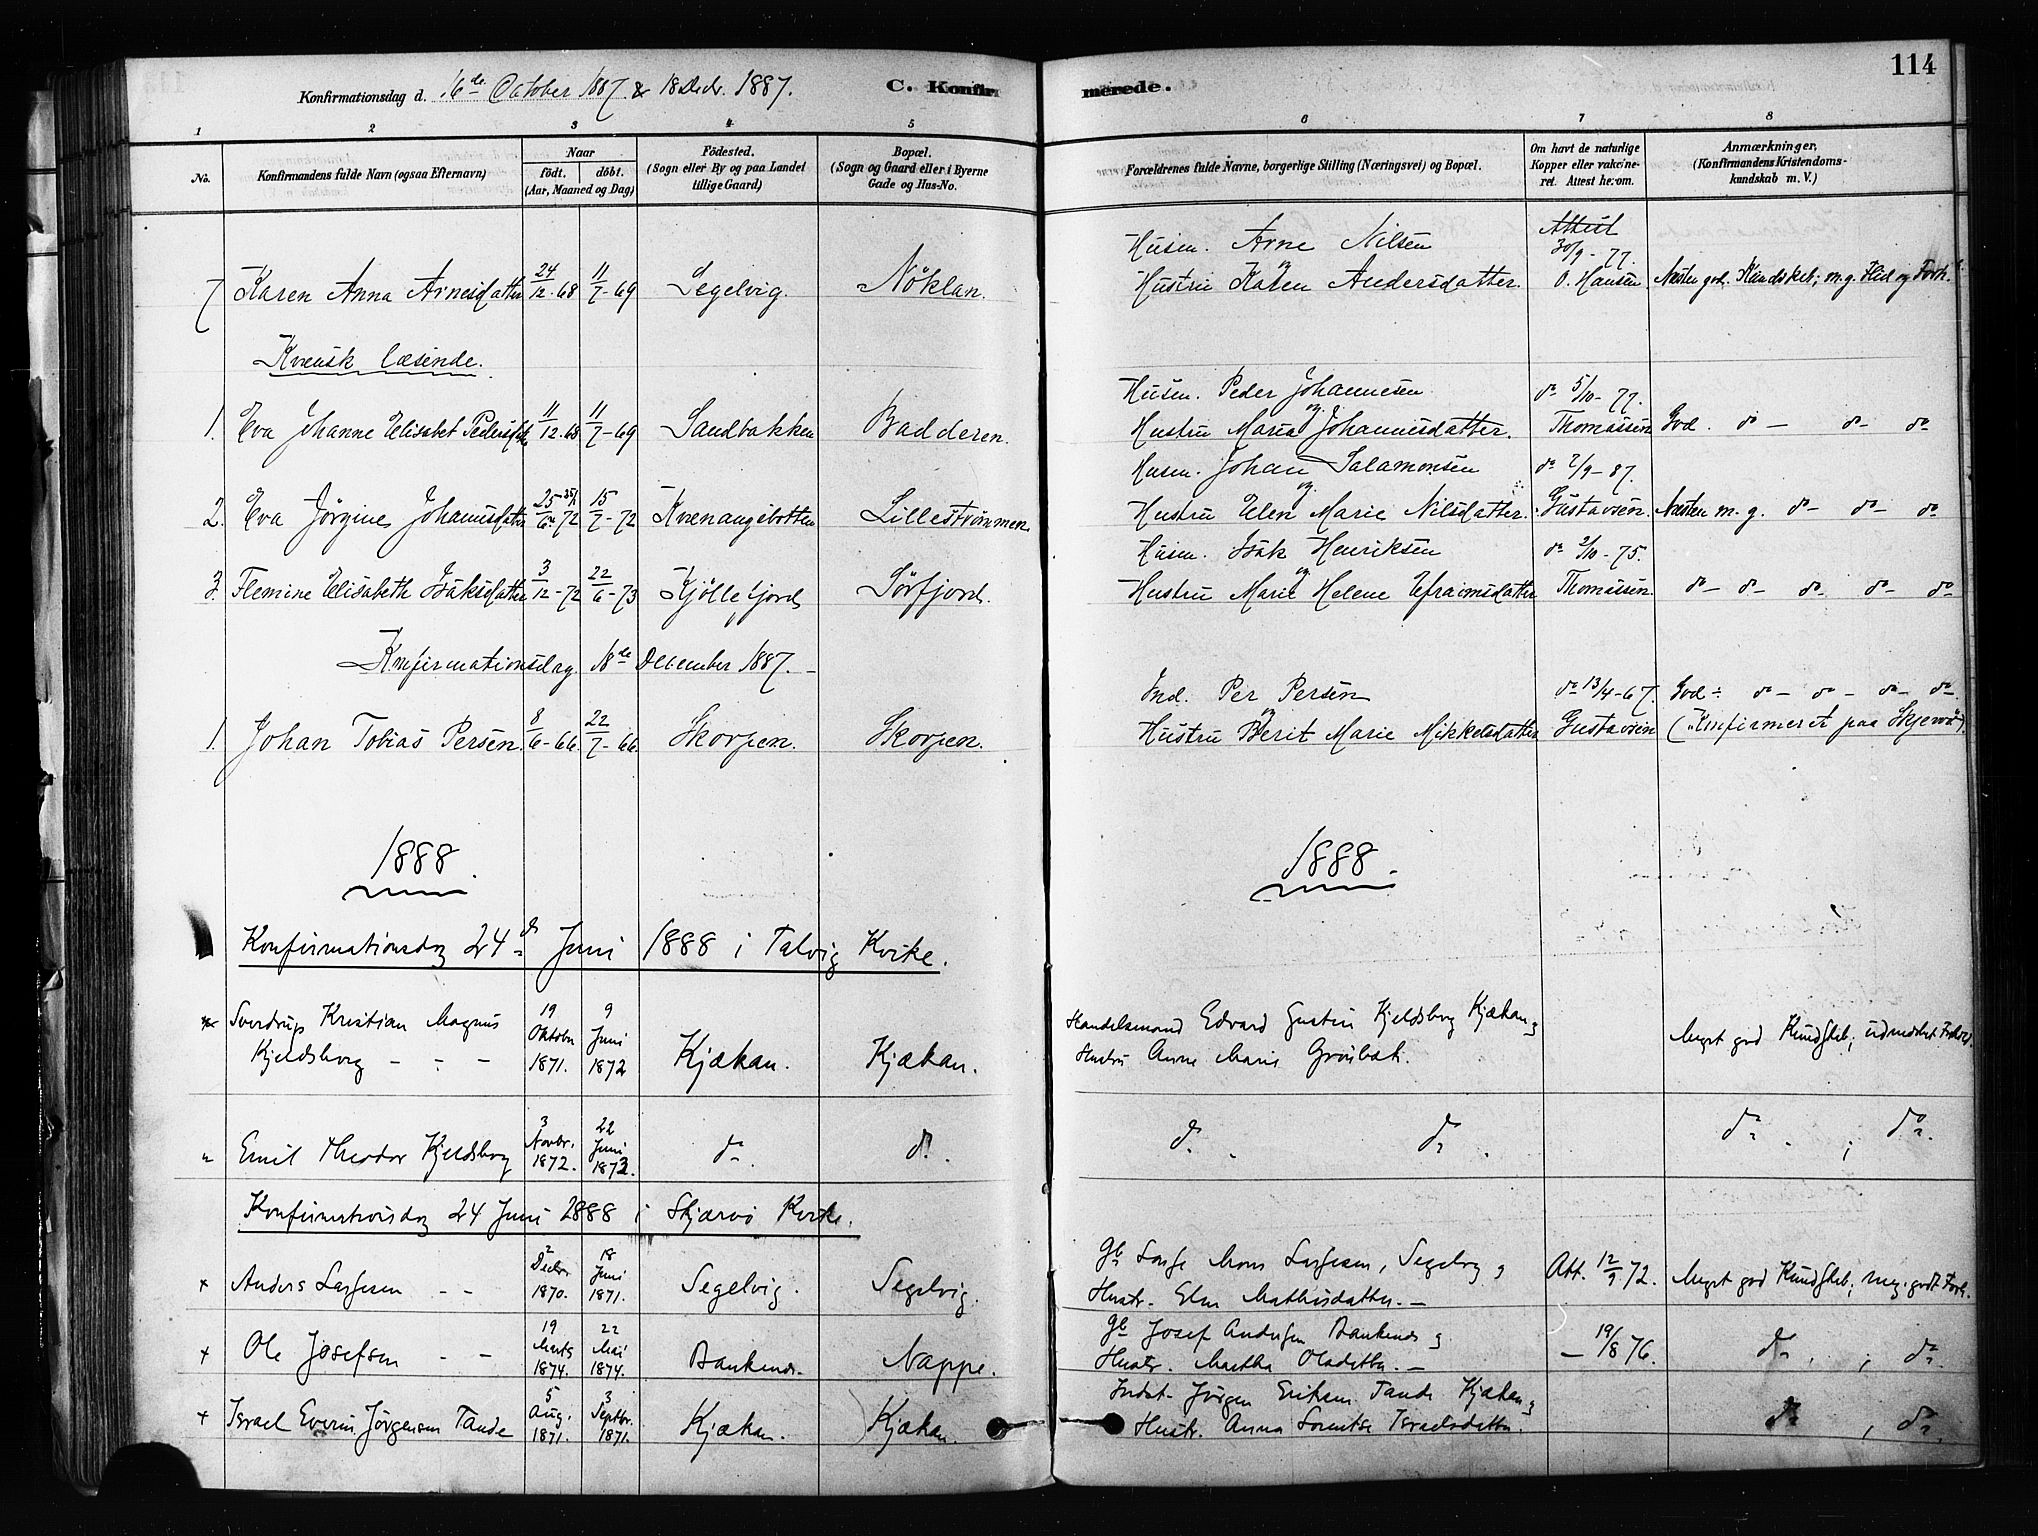 114
Konfirmationsdag d. 16de October 1887 & 18 Decbr. 1887.
C. Konfirmerede.
1 2 3 4 5 6 7 8
No.
Konfirmandens fulde Navn (ogsaa Efternavn)
Naar
födt. döbt.
(Aar, Maaned og Dag)
Födested.
(Sogn eller By og paa Landet
tillige Gaard)
Bopæl.
(Sogn og Gaard eller i Byerne
Gade og Hus-No.
Forældrenes fulde Navne, borgerlige Stilling (Næringsvei) og Bopæl.
Om havt de naturlige
Kopper eller vakcine-
ret. Attest herom.
Anmærkninger.
(Konfirmandens Kristendoms-
kundskab m. V.)
Husm. Arne Nilsen Attest 30/9-77.
7 Karen Anna Arnesdatter 24/12-68 11/7-69 Segelvig. Nöklan. og Hustru Karen Andersdatter. O. Hansen Næsten god. Kundskab; m.g. Flid og Forh.
Kvensk læsende.
Husm. Peder Johannesen do 5/10-77.
1. Eva Johanne Elisabet Pedersdtr 11/12-68 11/7-69 Sandbakken Badderen. og Hustru Maria Johannisdatter. Thomassen God. do - do - do
Husm. Johan Salamonsen do 2/9-87.
2. Eva Jörgine Johannisdatter 25/6-72 15/7-72 Kvenangsbotten Lillestrømmen og Hustru Elen Marie Nilsdatter. Gustavsen. Næsten m. g. do - do - do
Husm. Isak Henriksen do 2/10-75.
3. Flemine Elisabeth Isaksdatter 3/12-72 22/6-73 Kjöllefjord Sörfjord. og Hustru Marie Helene Efraimsdatter Thomassen. do - do - do - do - do
Konfirmationsdag 18de December 1887. -
Ind. Per Persen do 13/4-67. God - do - do - do - do
1. Johan Tobias Persen. 8/6-66. 22/7-66 Skorpen. Skorpen. og Hustru Berit Marie Mikkelsdatter Gustavsen (Konfirmeret paa Skjervö).
1888. 1888.
Konfirmationsdag 24de Juni 1888 i Talvig Kirke.
Sverdrup Kristian Magnus Kjeldsborg - " - 19 Oktober 1871. 9 Juni 1872 Kjækan. Kjækan. Handelsmand Edvard Gustin Kjeldsborg Kjækan og
Hustru Anne Marie Grönbæk. Meget god Kundskab; udmærket Forhold.
" Emil Theodor Kjeldsborg 3 Novbr. 1872. 22 Juni 1873. do. do. do. do. do. ; do.
Konfirmationsdag 24 Juni 1888 i Skjærvö Kirke.
+ Anders Larsesen - - 2 Decbr. 1870. 18 Juni 1871. Segelvig. Segelvig. Gb Lars Mons Larsesen, Segelvig og
Hustr. Elen Mathisdatter. - Att. 12/9 72. Meget god Kundskab; meg. godt Forh.
+ Ole Josefsen - - 19 Marts 1874. 22 Mai 1874. Bankenes. Nappe. Gb Josef Andersen Bankenes og
Hustr. Martha Olsdatter. - - 19/8 76. do. ; do.
+ Israel Everin Jörgensen Tande 5 Aug. 1871. 3 Septbr. 1871. Kjækan. Kjækan. Indst. Jörgen Eriksen Tande Kjækan og
Hustr. Anna Lorentse Israelsdatter. do , do.